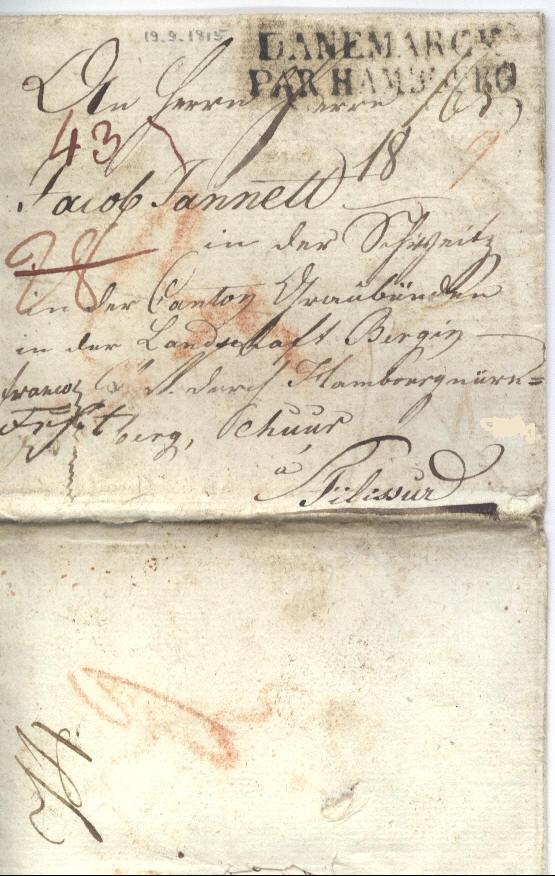 19.9.1815
DANEMARCK
PAR HAMBURG
An Herrn Herrn
43
18
Jacob Jannett
in der Schweitz
28
in der Canton Graubünden
in der Landschaft Bergün
franco durch Hamboergnüren=
berg, Chuur
à
Filissur